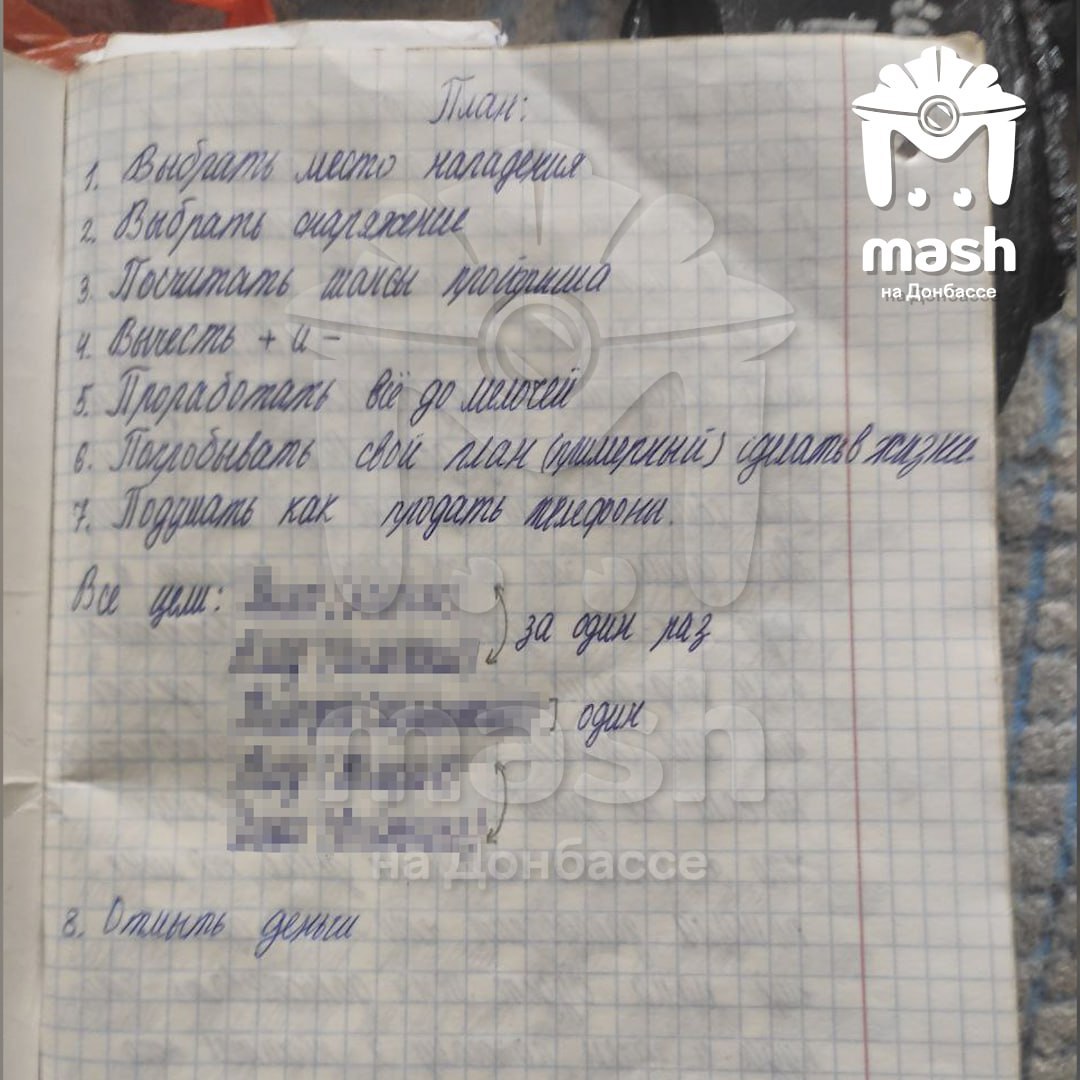 План:
1. Выбрать место нападения
2. Выбрать снаряжение
3. Посчитать шансы проигриша
4. Вычесть + и -
5. Проработать всё до мелочей
6. Попробывать свой план (примерный) сделать в жизни.
7. Подумать как продать телефоны.
Все цели:
за один раз
один
8. Отмыть деньги
mash
на Донбассе
mash
на Донбассе